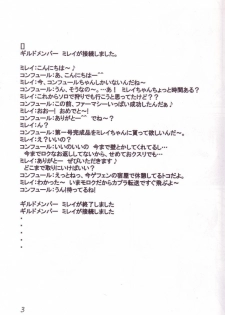 []
ギルドメンバー ミレイが接続しました。
ミレイ：こんにちは～♪
コンフュール：あ、こんにちは＾＾
ミレイ：今、コンフュールちゃんしかいないんだね～
コンフュール：うん、そうなの～…あ！ ミレイちゃんちょっと時間ある？
ミレイ：これからソロで狩りでも行こうと思ってたけど？
コンフュール：この前、ファーマシーいっぱい成功したんだぁ♪
ミレイ：おおー！ おめでと～！
コンフュール：ありがと～＾＾ でね～？
ミレイ：ん？
コンフュール：第一号完成品をミレイちゃんに貰って欲しいんだ～
ミレイ：え？いいの？
コンフュール：いいのいいの 今まで壁とかしてくれてるし…
今までロクなお返ししてないから、せめておクスリでも…
ミレイ：ありがとー ぜひいただきます♪
どこまで取りにいけばいい？
コンフュール：えっとねっ、今ゲフェンの宿屋で休憩してるトコだよ。
ミレイ：わかった～ いまモロクだからカプラ転送ですぐ飛ぶよ～
コンフュール：うん！待ってるね！
ギルドメンバー ミレイが終了しました
ギルドメンバー ミレイが接続しました
・
・
・
・
3